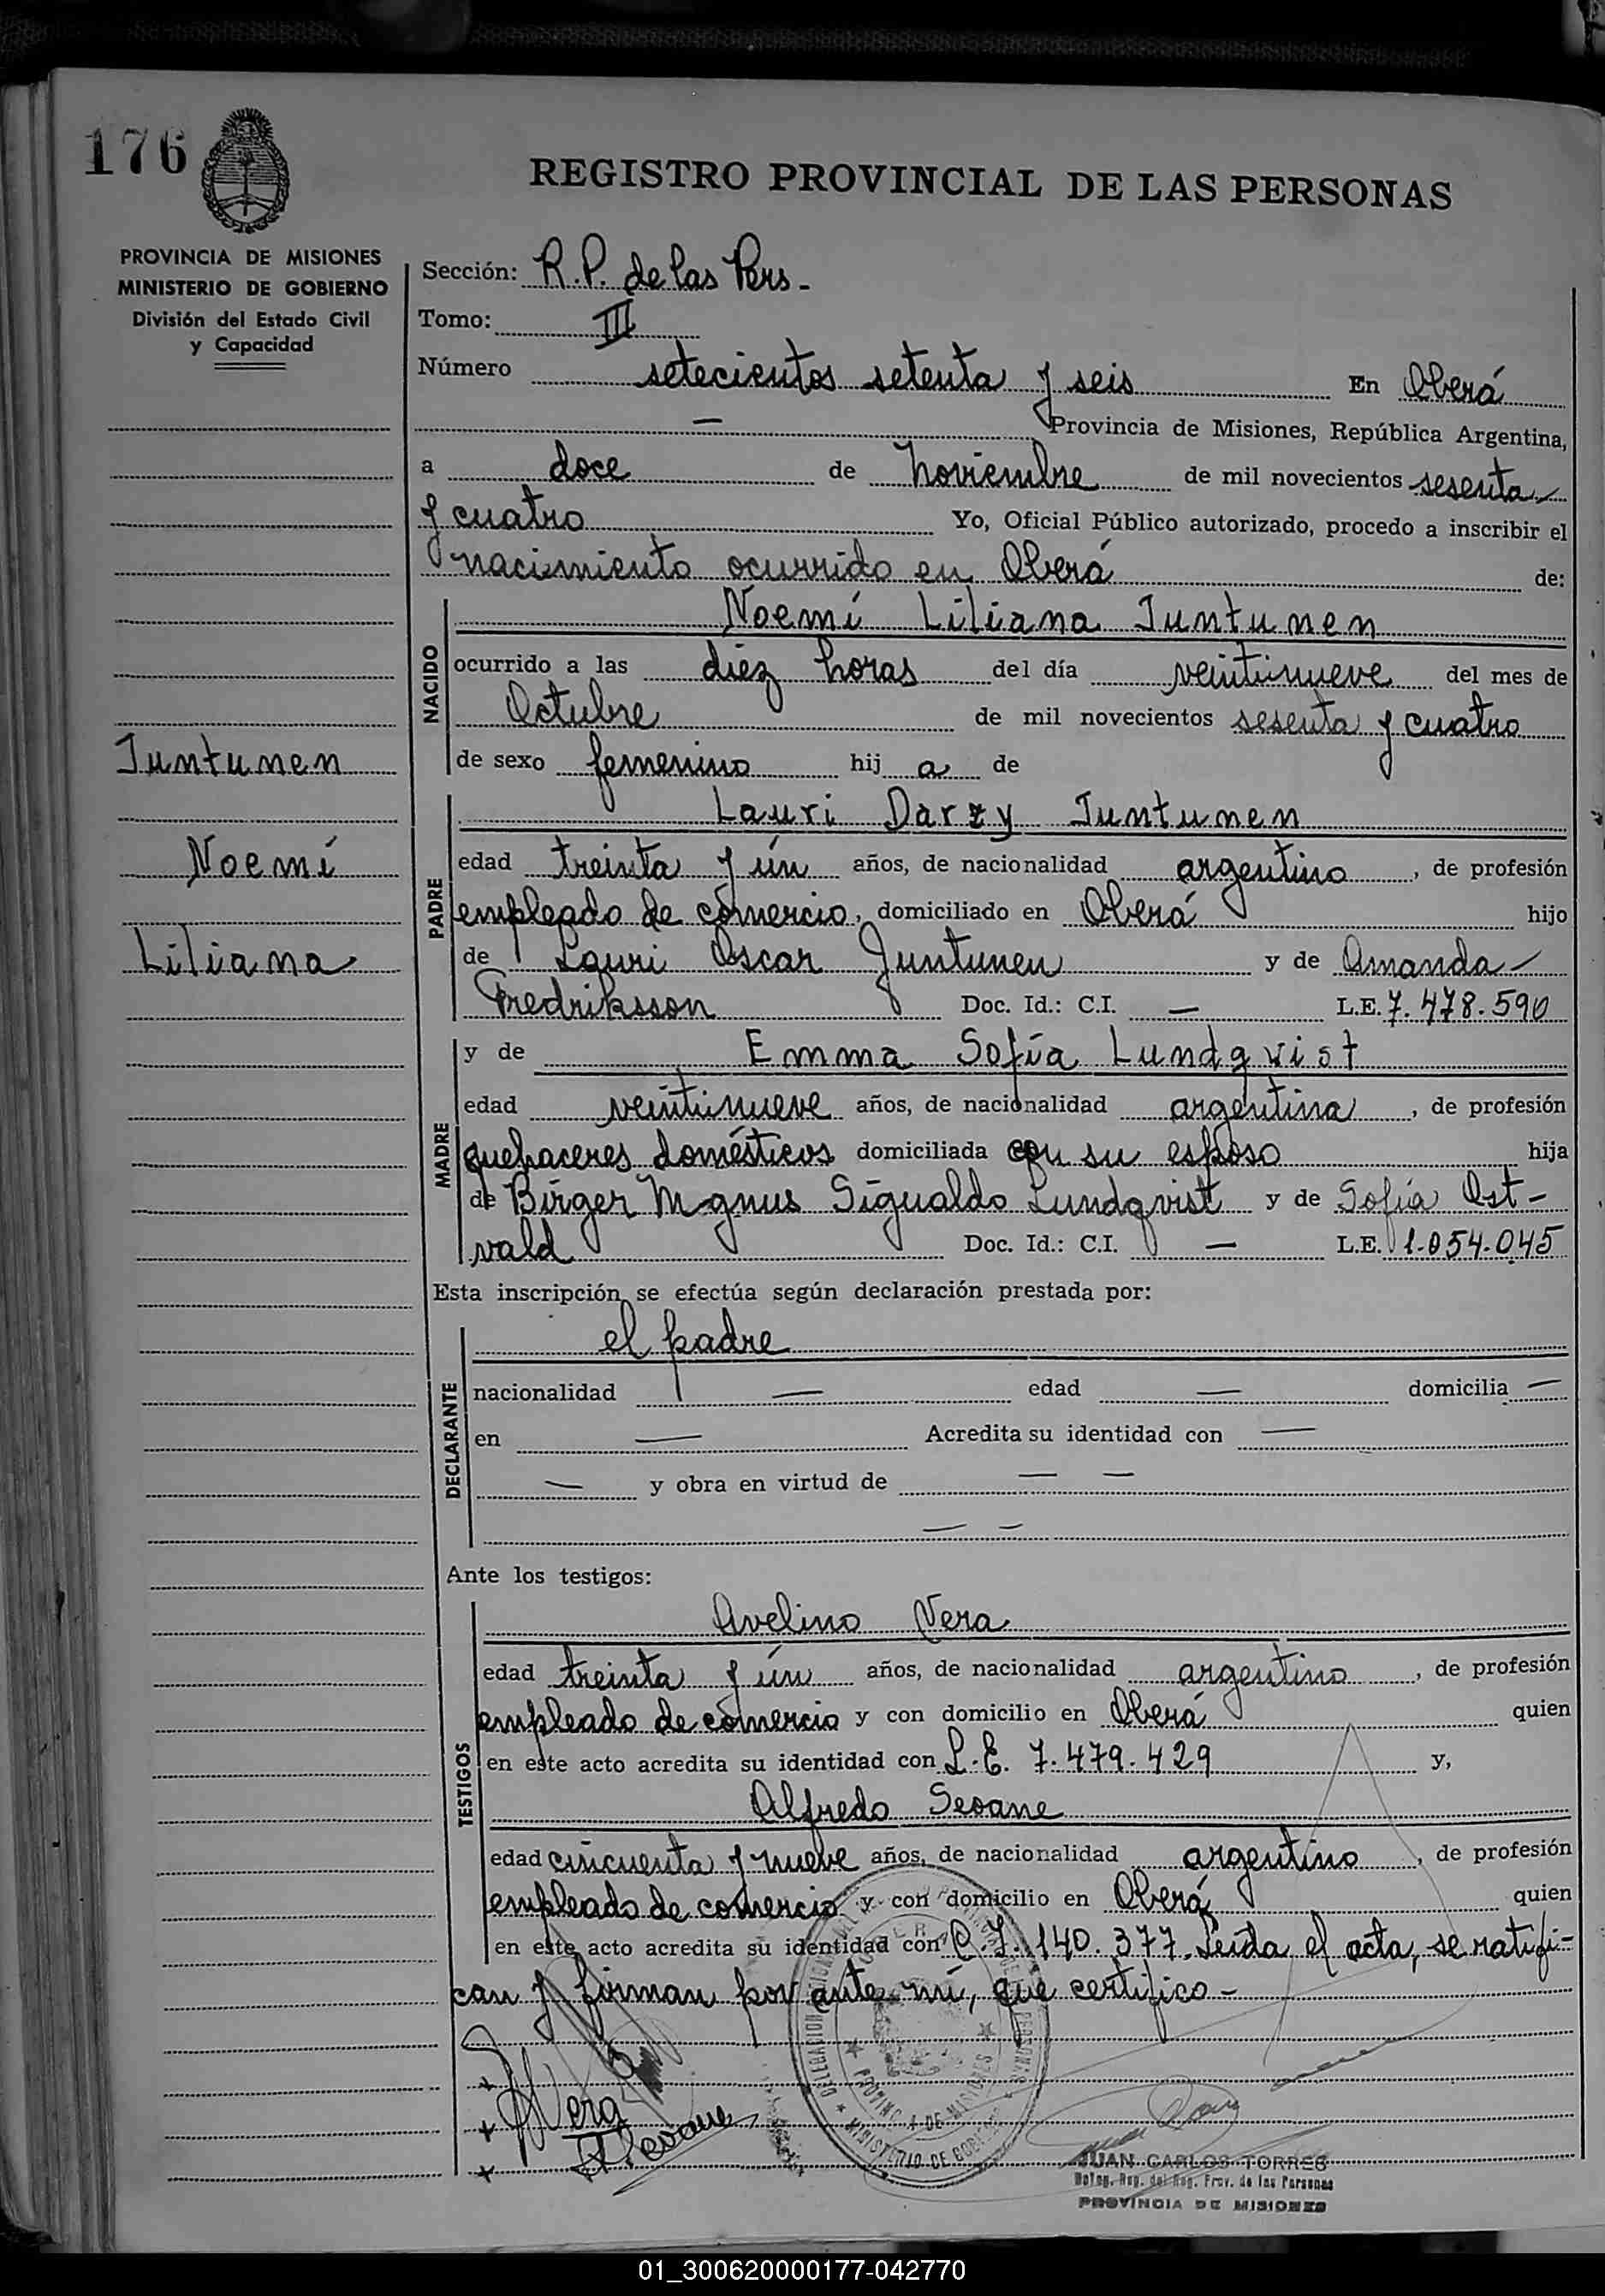 176
REGISTRO PROVINCIAL DE LAS PERSONAS
PROVINCIA DE MISIONES
MINISTERIO DE GOBIERNO
División del Estado Civil
y Capacidad
Sección: R.P. de las Pers -
Tomo: III
Número setecientos setenta y seis En Oberá
— Provincia de Misiones, República Argentina,
a doce de noviembre de mil novecientos sesenta
y cuatro Yo, Oficial Público autorizado, procedo a inscribir el
nacimiento ocurrido en Oberá de:
Noemí Liliana Juntunen
NACIDO
ocurrido a las diez horas del día veintinueve del mes de
Octubre de mil novecientos sesenta y cuatro
de sexo femenino hij a de
Juntunen
Noemí
Liliana
Lauri Darzy Juntunen
PADRE
edad treinta y ún años, de nacionalidad argentino, de profesión
empleado de comercio, domiciliado en Oberá hijo
de Lauri Oscar Juntunen y de Amanda —
Fredriksson Doc. Id.: C.I. — L.E. 7.478.590
y de Emma Sofía Lundqvist
MADRE
edad veintinueve años, de nacionalidad argentina, de profesión
quehaceres domésticos domiciliada con su esposo hija
de Birger Magnus Sigualdo Lundqvist y de Sofía Ost-
vald Doc. Id.: C.I. — L.E. 1.054.045
Esta inscripción se efectúa según declaración prestada por:
el padre
DECLARANTE
nacionalidad — edad — domicilia —
en — Acredita su identidad con —
— y obra en virtud de — —
— —
Ante los testigos:
Avelino Vera
TESTIGOS
edad treinta y ún años, de nacionalidad argentino, de profesión
empleado de comercio y con domicilio en Oberá quien
en este acto acredita su identidad con L.E. 7.479.429 y,
Alfredo Seoane
edad cincuenta y nueve años, de nacionalidad argentino, de profesión
empleado de comercio y con domicilio en Oberá quien
en este acto acredita su identidad con C.I. 140.377. Leída el acta, se ratifi-
can y firman por ante mí, que certifico -
Vera
A Seoane
PROVINCIA DE MISIONES
MINISTERIO DE GOBIERNO
JUAN CARLOS TORRES
Deleg. Reg. del Reg. Prov. de las Personas
PROVINCIA DE MISIONES
01_300620000177-042770